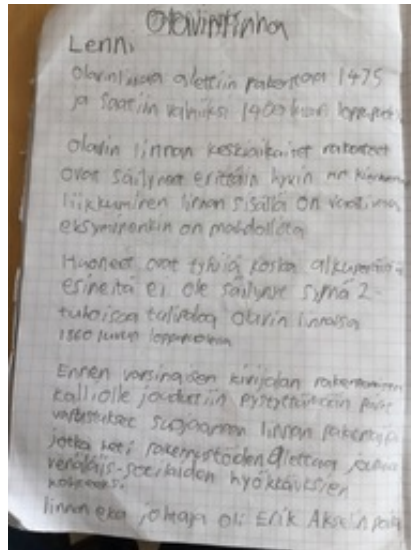 Olavinlinna
Lenni
Olavinlinaa alettiin rakentaa 1475
ja saatiin valmiiksi 1400 luvun
Olavin linnan keskiaikaiset rakenteet
ovat säilyneet erittäin hyvin
liikkuminen linnan sisällä on
eksyminenkin on mahdollista
Huoneet ovat tyhjiä koska
esineitä ei ole säilynyt syynä 2
tuhoisaa tulipaloa Olavin linnassa
1860 luvun
Ennen varsinaisen kivijalan rakentaminen
kalliolle jouduttiin pystyttämään
varustukset suojaamaan linnan
jotka heti rakennustöiden alettua
venäläis-sotilaiden hyökkäyksien
kohteeksi
linnan eka johtaja oli Erik Akselinpoika